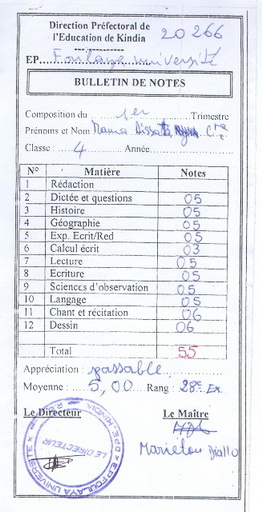 Direction Préfectoral de
l'Education de Kindia
20266
EP Foulaya université
BULLETIN DE NOTES
Composition du 1er Trimestre
Prénoms et Nom Mama Aissata
Classe : 4 Année
N° Matière Notes
1 Rédaction
2 Dictée et questions 05
3 Histoire 05
4 Géographie 05
5 Exp. Ecrit/Red 05
6 Calcul écrit 03
7 Lecture 05
8 Ecriture 05
9 Sciences d'observation 05
10 Langage 05
11 Chant et récitation 06
12 Dessin 06
Total 55
Appréciation : passable
Moyenne : 5,00 Rang : 28e Ex
Le Directeur Le Maître
LE DIRECTEUR
Mariétou Diallo